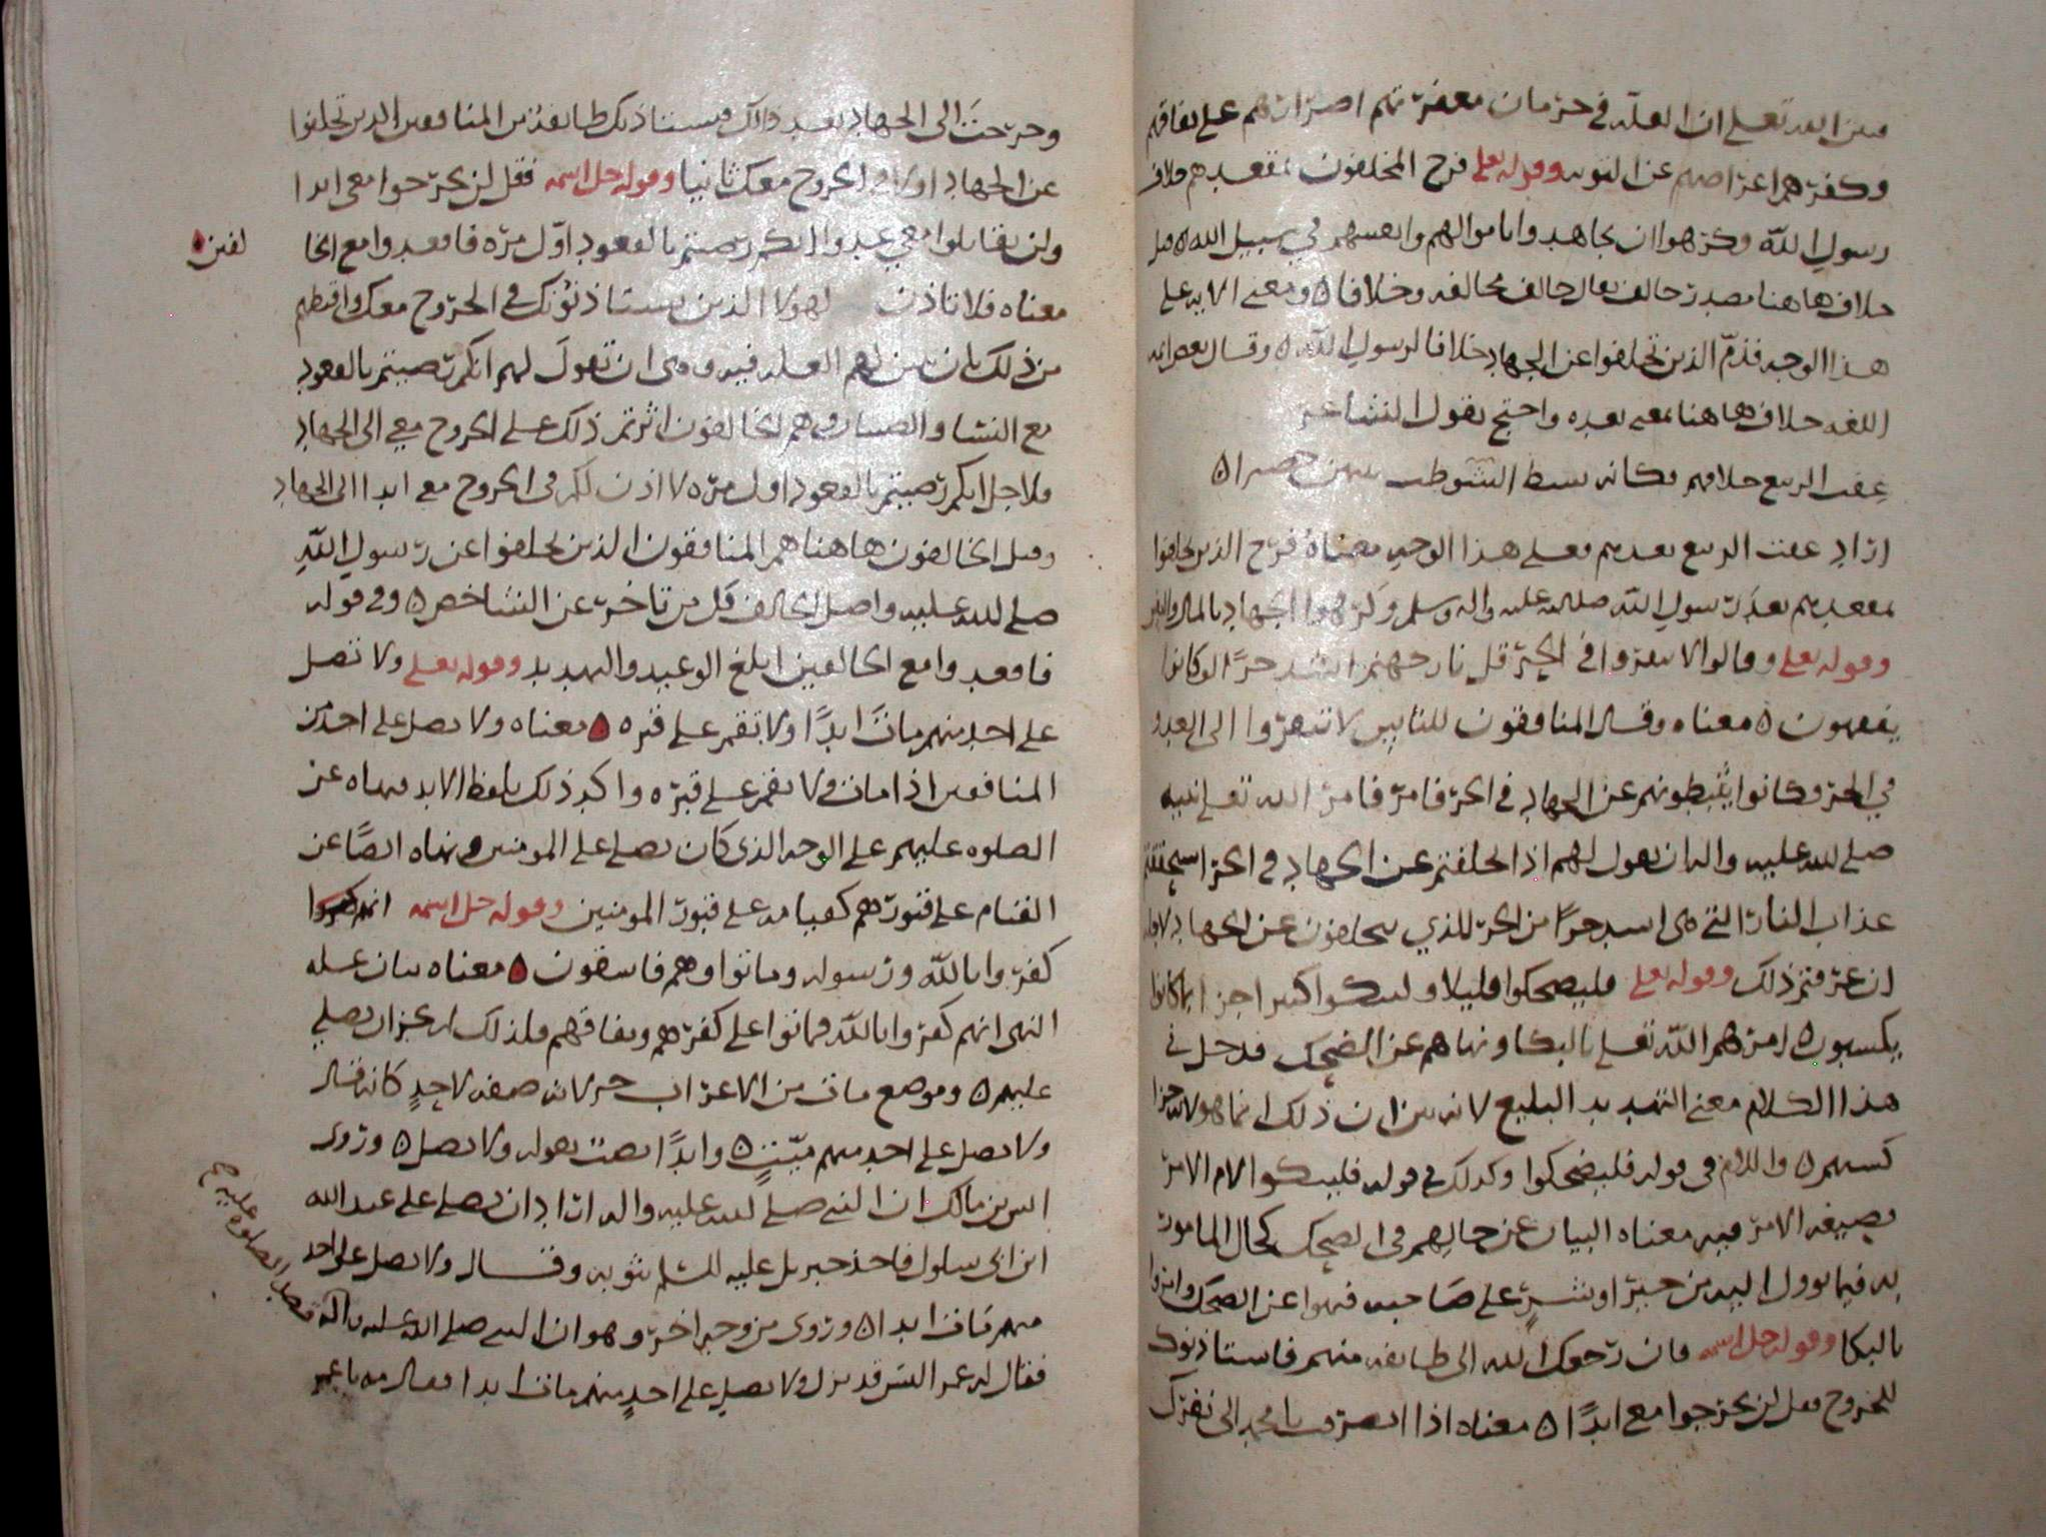 فبين الله تعلى ان العله في حرمان مغفرتهم اصرارهم على نفاقهم
وكفرهم اعراضهم عن التوبه وقوله تعلى فرح المخلفون بمقعدهم خلاف
رسول الله وكرهوا ان يجاهدوا باموالهم وانفسهم في سبيل الله ه قيل
خلاف هاهنا مصدر خالف يقال خالف مخالفه وخلافا ه ومعنى الايه على
هذا الوجه فذم الذين تخلفوا عن الجهاد خلافا لرسول الله ه وقال بعض
اللغه خلاف هاهنا بمعنى بعده واحتج بقول الشاعر
عفت الربيع خلافهم فكانه بسط الشوطب بينهن حصرا ه
اراد عفت الربيع بعدهم فعلى هذا الوجه معناه فرح الذين تخلفوا
بمقعدهم بعد رسول الله صلى الله عليه واله وسلم وكرهوا الجهاد بالمال والنفس
وقوله تعلى وقالوا لا تنفروا في الحر قل نار جهنم اشد حرا لو كانوا
يفقهون ه معناه وقال المنافقون للناس لا تنفروا الى العدو
في الحر وكانوا يثبطونهم عن الجهاد في الحر فامر الله تعلى نبيه
صلى الله عليه واله ان يقول لهم اذا تخلفتم عن الجهاد في الحر استحققتم
عذاب النار التي هي اشد حرا من الحر للذي تتخلفون عن الجهاد لاجله
ان عرفتم ذلك وقوله تعلى فليضحكوا قليلا وليبكوا كثيرا جزا بما كانوا
يكسبون ه امرهم الله تعلى بالبكا ونهاهم عن الضحك فدخل في
هذا الكلام معنى التهديد البليغ لانه بين ان ذلك انما هو لاجل جزا
كسبهم ه واللام في قوله فليضحكوا وكذلك في قوله فليبكوا لام الامر
بصيغه الامر فيه معناه البيان عن حالهم في الضحك كحال المامور
به فيما يوول اليه من خير او شر على صاحبه فنهوا عن الضحك وامروا
بالبكا وقوله جل اسمه فان رجعك الله الى طايفه منهم فاستاذنوك
للخروج فقل لن تخرجوا معي ابدا ه معناه اذا انصرفت يا محمد الى نفرك
وخرجت الى الجهاد بعد ذلك فيستاذنك طايفه من المنافقين الذين تخلفوا
عن الجهاد اولا في الخروج معك ثانيا وقوله جل اسمه فقل لن تخرجوا معي ابدا
ولن تقاتلوا معي عدوا انكم رضيتم بالقعود اول مره فاقعدوا مع الخا لفين
معناه فلا تاذن لهولا الذين يستاذنونك في الخروج معك واقطهم
من ذلك بان تبين لهم العله فيه وهي ان تقول لهم انكم رضيتم بالقعود
مع النسا والصبيان وهم الخالفون اثرتم ذلك على الخروج معي الى الجهاد
ولاجل انكم رضيتم بالقعود اول مره لا اذن لكم في الخروج معي ابدا الى الجهاد
وقيل الخالفون هاهنا هم المنافقون الذين تخلفوا عن رسول الله
صلى الله عليه واصل الخالف كل من تاخر عن الشاخص ه وفي قوله
فاقعدوا مع الخالفين ابلغ الوعيد والتهديد وقوله تعلى ولا تصل
على احد منهم مات ابدا ولا تقم على قبره ه معناه ولا تصل على احد من
المنافقين اذا مات ولا تقم على قبره واكد ذلك بلفظ الابد فنهاه عن
الصلوه عليهم على الوجه الذي كان يصلي على المومنين ونهاه ايضا عن
القيام على قبورهم كقيامه على قبور المومنين وقوله جل اسمه انهم
كفروا بالله ورسوله وماتوا وهم فاسقون ه معناه بيان عله
النهي انهم كفروا بالله فماتوا على كفرهم ونفاقهم فلذلك لم يجز ان يصلي
عليهم ه وموضع مات من الاعراب جر لانه صفه لاحد كانه قال
ولا تصل على احد منهم ميت ه وابدا نصب بقوله ولا تصل ه وروى
انس بن مالك ان النبي صلى الله عليه واله اراد ان يصلي على عبد الله
ابن ابي سلول فاخذ جبريل عليه السلم بثوبه وقال ولا تصل على احد
منهم مات ابدا ه وروى من وجه اخر وهو ان النبي صلى الله عليه واله قصد الصلوه عليه
فقال له عمر اليس قد نزل ولا تصل على احد منهم مات ابدا فقال مه يا عمر